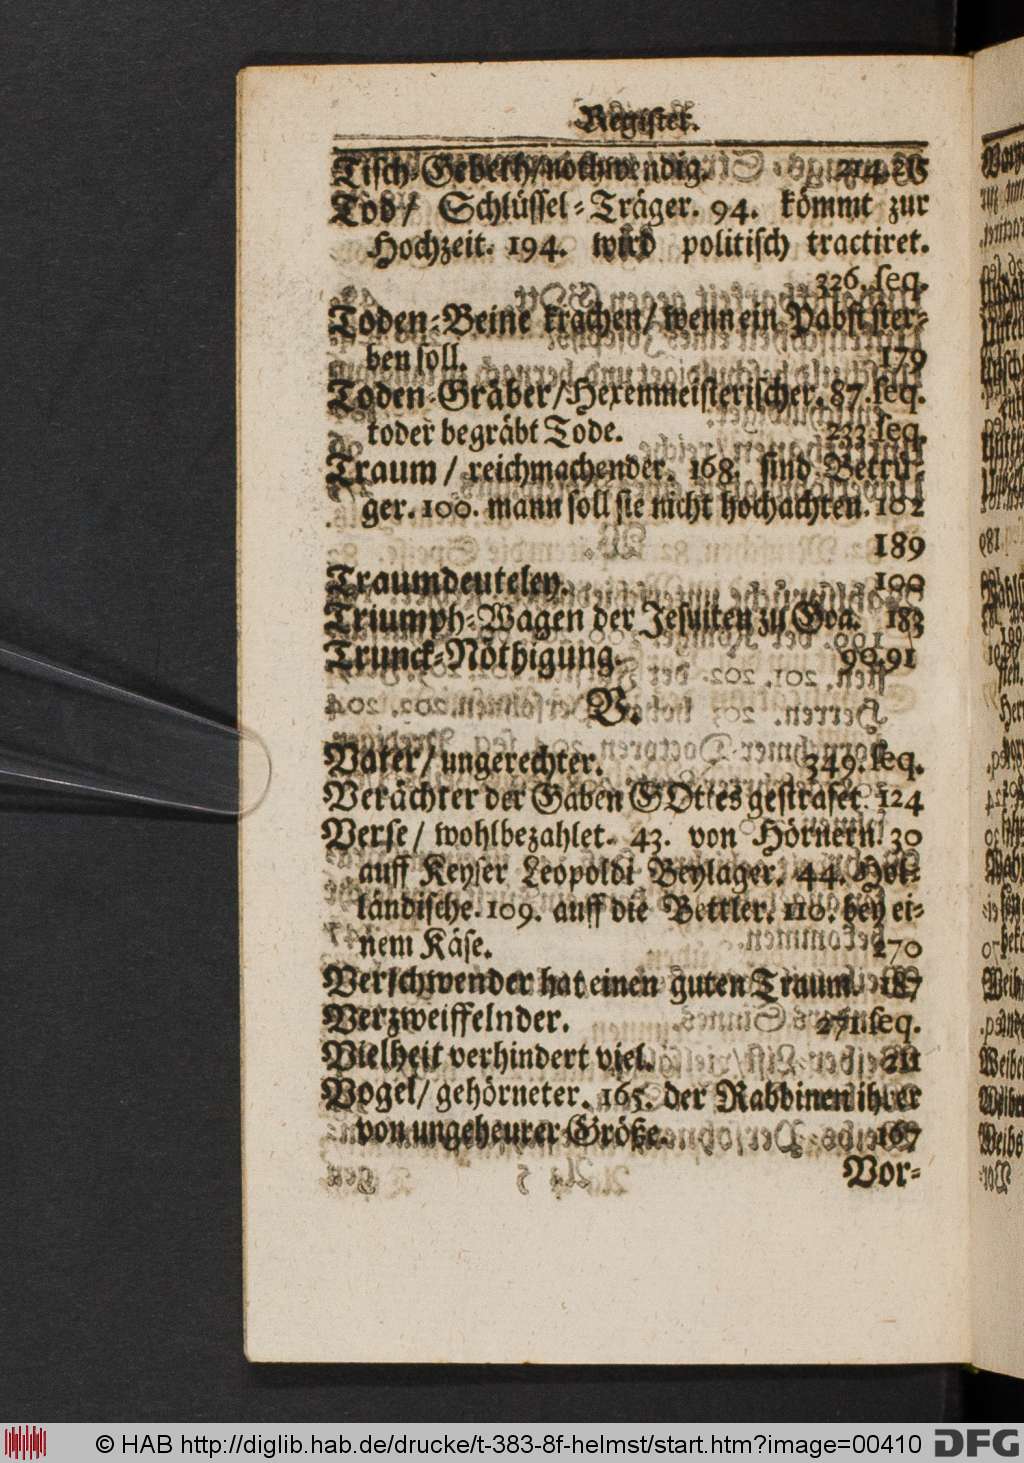 Register.
Tisch-Gebeth/nothwendig. 214.
Tod/ Schlüssel-Träger. 94. kömmt zur
Hochzeit. 194. wird politisch tractiret.
326. seq.
Toden-Beine krachen/ wenn ein Pabst ster-
ben soll. 179
Toden-Gräber/Hexenmeisterischer. 87. seq.
toder begräbt Tode. 233 seq.
Traum / reichmachender. 168. sind Betrü-
ger. 100. mann soll sie nicht hochachten. 102
189
Traumdeuteley. 100
Triumph-Wagen der Jesuiten zu Goa. 183
Trunck-Nöthigung. 90. 91
V.
Vater/ ungerechter. 349. seq.
Verächter der Gaben GOttes gestrafet. 124
Verse/ wohlbezahlet. 43. von Hörnern. 30
auff Keyser Leopoldi Beylager. 44. Hol-
ländische. 109. auff die Bettler. 110. bey ei-
nem Käse. 270
Verschwender hat einen guten Traum. 187
Verzweiffelnder. 271. seq.
Vielheit verhindert viel. 211
Vogel/ gehörneter. 165. der Rabbinen ihrer
von ungeheurer Größe. 167
Vor-
© HAB http://diglib.hab.de/drucke/t-383-8f-helmst/start.htm?image=00410
DFG